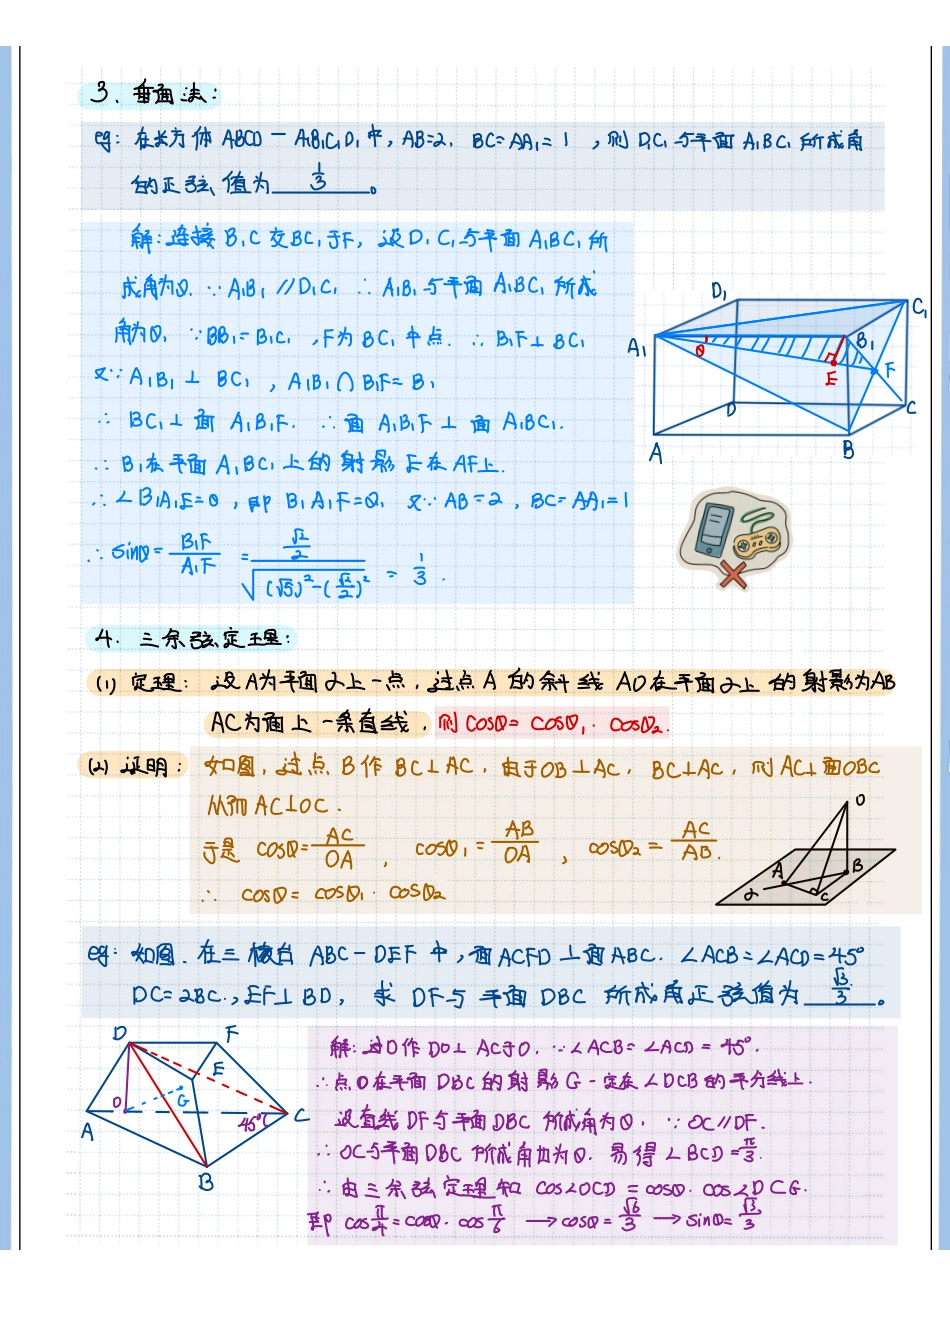 3. 垂面法:
eg: 在长方体 ABCD — A₁B₁C₁D₁ 中, AB=2, BC=AA₁=1 , 则 D₁C₁ 与平面 A₁BC₁ 所成角
的正弦值为 1/3 。
解: 连接 B₁C 交 BC₁ 于F, 设 D₁C₁ 与平面 A₁BC₁ 所
成角为θ. ∵ A₁B₁ // D₁C₁ ∴ A₁B₁ 与平面 A₁BC₁ 所成
角为θ, ∵ BB₁=B₁C₁ , F为 BC₁ 中点. ∴ B₁F⊥BC₁
又∵ A₁B₁ ⊥ BC₁ , A₁B₁ ∩ B₁F= B₁
∴ BC₁⊥面 A₁B₁F. ∴面 A₁B₁F ⊥ 面 A₁BC₁.
∴ B₁在平面 A₁BC₁ 上的射影 E在 AF上.
∴ ∠B₁A₁E=θ , 即 B₁A₁F=θ, 又∵ AB=2, BC=AA₁=1
∴ sinθ= B₁F/A₁F = (√2/2)/√((√5)²-(√2/2)²) = 1/3 .
D₁
C₁
A₁
θ
B₁
E
F
D
C
A
B
4. 三余弦定理:
(1) 定理: 设A为平面α上一点, 过点A的斜线 AO在平面α上的射影为AB
AC为面上一条直线, 则 cosθ= cosθ₁· cosθ₂.
(2) 证明: 如图, 过点B作 BC⊥AC, 由于OB⊥AC, BC⊥AC, 则 AC⊥面OBC
从而 AC⊥OC.
于是 cosθ= AC/OA , cosθ₁= AB/OA , cosθ₂= AC/AB.
∴ cosθ= cosθ₁· cosθ₂
O
A
B
α
C
eg: 如图, 在三棱台 ABC-DEF 中, 面ACFD⊥面ABC. ∠ACB=∠ACD=45°
DC=2BC., EF⊥BD, 求 DF与平面 DBC 所成角正弦值为 √3/3 。
D
F
E
O
G
A
45°
C
B
解: 过D作 DO⊥AC于O. ∵∠ACB=∠ACD = 45°.
∴点O在平面 DBC的射影 G一定在∠DCB的平分线上.
设直线DF与平面DBC 所成角为θ. ∵ OC//DF.
∴ OC与平面DBC 所成角也为θ. 易得∠BCD=π/3.
∴ 由三余弦定理知 cos∠OCD = cosθ· cos∠DCG.
即 cosπ/4=cosθ·cosπ/6 → cosθ= √6/3 → sinθ= √3/3